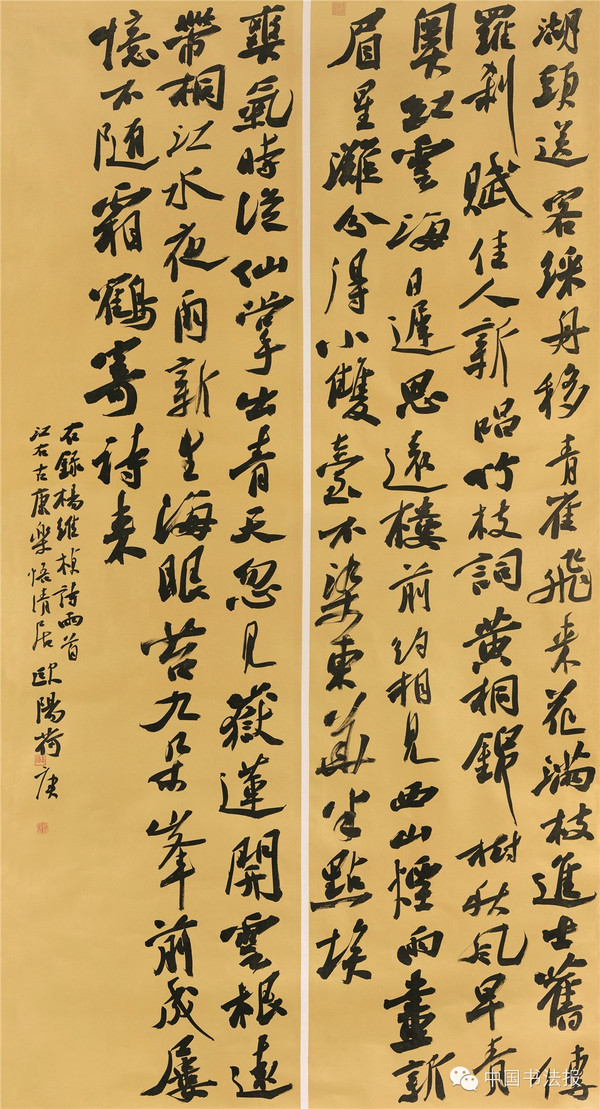 湖頭送客綵舟移青雀飛来花滿枝進士舊傳
羅刹賦佳人新唱竹枝詞黄桐錦樹秋風早青
奥紅雲海日遲思遠樓前約相見西山煙雨畫新
眉星灘分得小雙臺不染東華半點埃
爽氣時從仙掌出青天忽見嶽蓮開雲根遠
帶桐江水夜雨新生海眼苔九朵峯前成屢
憶不随霜鶴寄詩来
右錄楊維楨詩兩首
江右古康樂悟清居歐陽荷庚
中国书法报